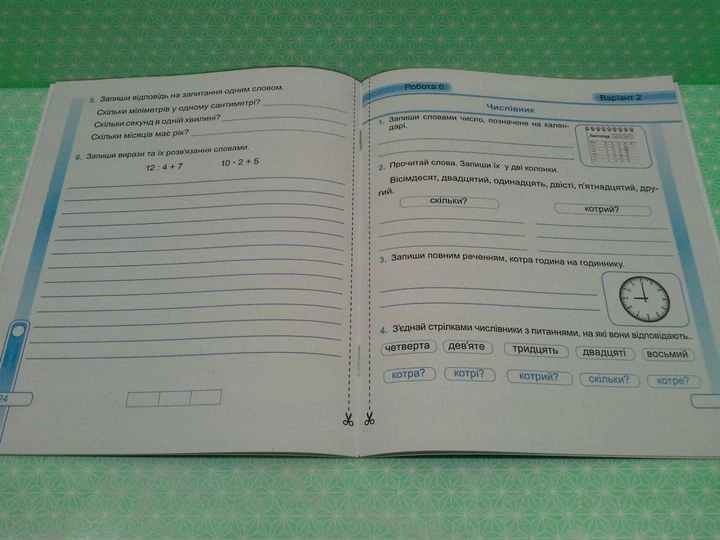 5. Запиши відповідь на запитання одним словом.
Скільки міліметрів у одному сантиметрі?
Скільки секунд в одній хвилині?
Скільки місяців має рік?
6. Запиши вирази та їх розв'язання словами.
12 : 4 + 7 10 · 2 + 5
24
Робота 6
Варіант 2
Числівник
1. Запиши словами число, позначене на кален-
дарі.
Листопад
2. Прочитай слова. Запиши їх у дві колонки.
Вісімдесят, двадцятий, одинадцять, двісті, п'ятнадцятий, дру-
гий.
скільки? котрий?
3. Запиши повним реченням, котра година на годиннику.
4. З'єднай стрілками числівники з питаннями, на які вони відповідають.
четверта дев'яте тридцять двадцяті восьмий
котра? котрі? котрий? скільки? котре?